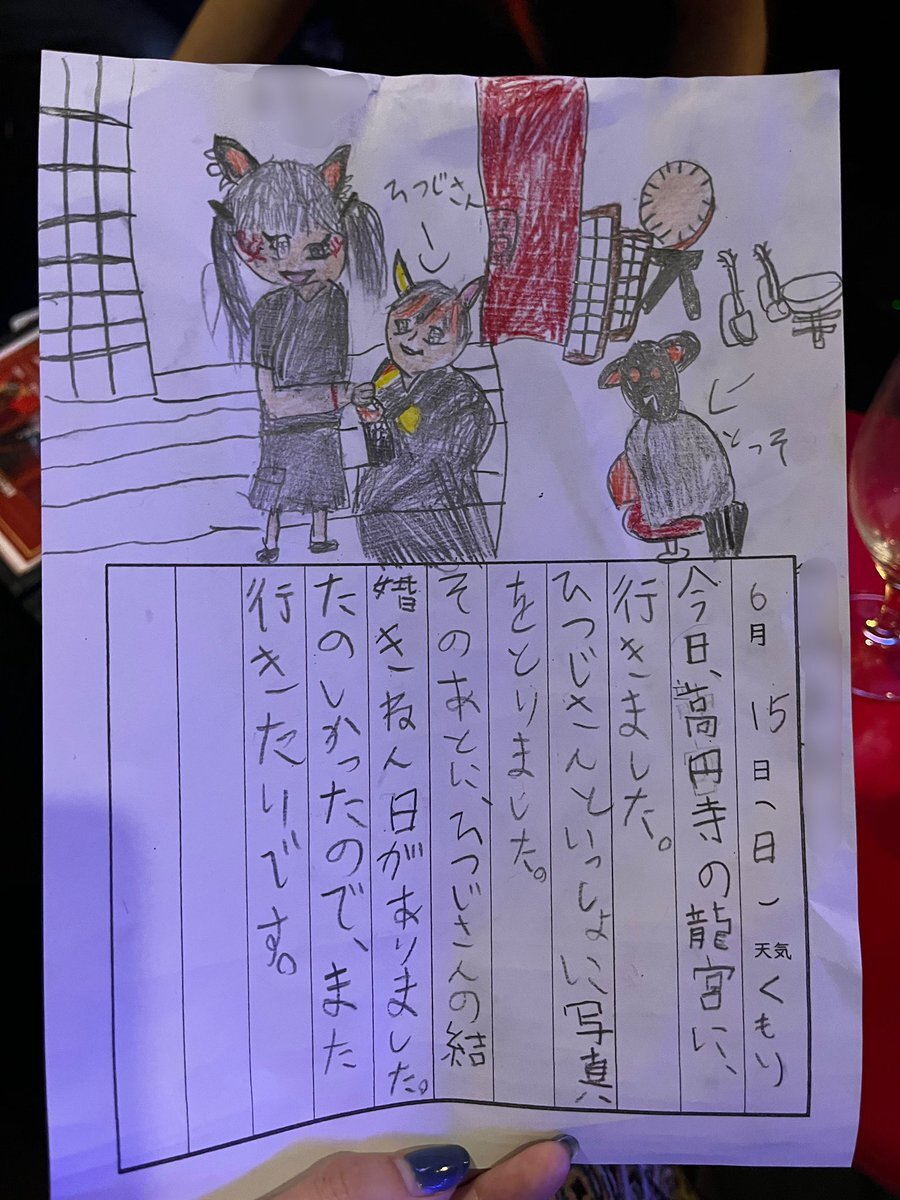 ひつじさん
とっそ
6月15日(日) 天気 くもり
今日、高円寺の龍宮に、
行きました。
ひつじさんといっしょに写真
をとりました。
そのあとに、ひつじさんの結
婚きねん日がありました。
たのしかったので、また
行きたいです。